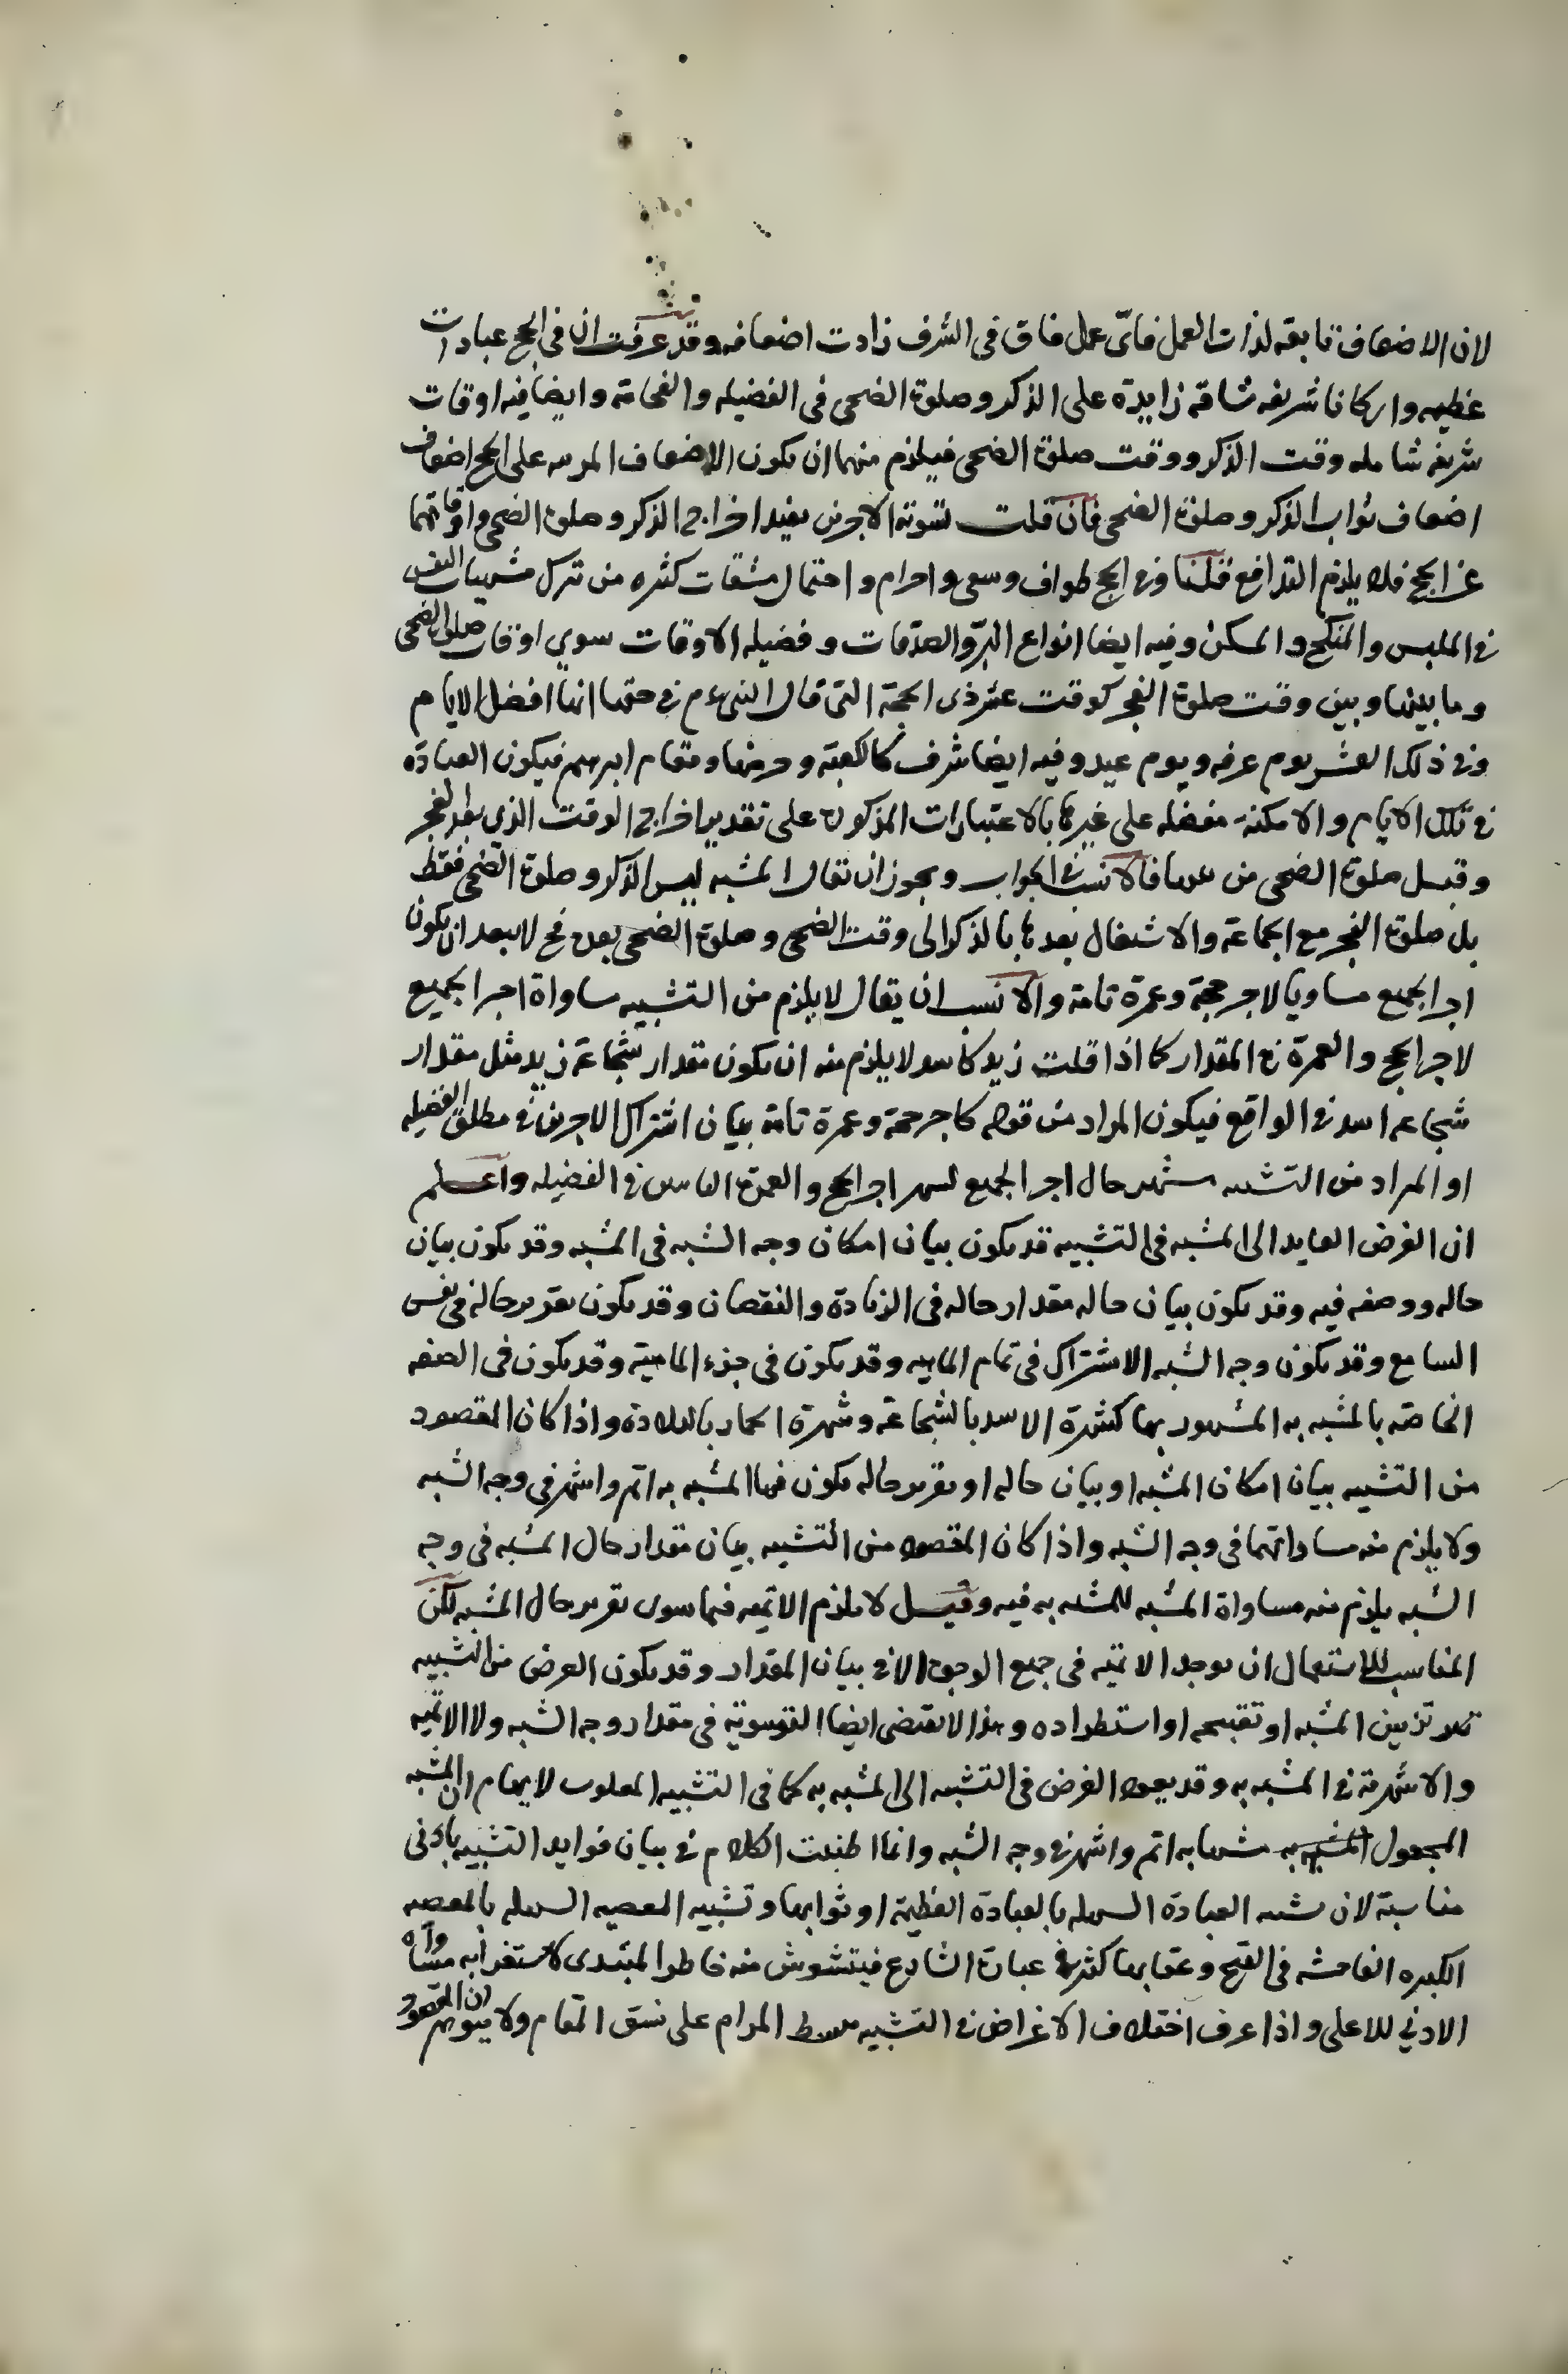 لان الاضعاف تابعة لذات العمل فايّ عمل فاق في الشرف زادت اضعافه وقد عرفت ان في الحج عبادات
عظيمه واركانا شريفه شاقه زايدة على الذكر وصلوة الضحى في الفضيله والفخامة وايضا فيه اوقات
شريفه شامله وقت الذكر ووقت صلوة الضحى فيلزم منهما ان يكون الاضعاف المرتبه على الحج اضعاف
اضعاف ثواب الذكر وصلوة الضحى فان قلت تسوية الاجرين يفيد اخراج الذكر وصلوة الضحى واوقاتهما
عن الحج فلا يلزم التدافع قلنا وفي الحج طواف وسعي واحرام واحتمال مشقات كثيره من ترك مشتهيات النفس
في الملبس والمنكح والمسكن وفيه ايضا انواع البرّ والصدقات وفضيله الاوقات سوي اوقات صلوة الضحى
وما بينها وبين وقت صلوة الفجر كوقت عشر ذي الحجة التي قال النبي ءم في حقها انها افضل الايام
وفي ذلك العشر يوم عرفه ويوم عيد وفيه ايضا شرف كالكعبة وحرمها ومقام ابرهيم فيكون العبادة
في تلك الايام والامكنة مفضله على غيرها بالاعتبارات المذكوره على تقدير اخراج الوقت الذي بعد الفجر
وقبل صلوة الضحى من فالانسب في الجواب ويجوز ان يقال المشبه ليس الذكر وصلوة الضحى فقط
بل صلوة الفجر مع الجماعة والاشتغال بعدها بالذكر الى وقت الضحى وصلوة الضحى بعده فح لا يبعد ان يكون
اجر الجميع مساويا لاجر حجة وعمرة تامة والانسب ان يقال لا يلزم من التشبيه مساواة اجر الجميع
لاجر الحج والعمرة في المقدار كما اذا قلت زيد كاسد لا يلزم منه ان يكون مقدار شجاعة زيد مثل مقدار
شجاعه اسد في الواقع فيكون المراد من قوله كاجر حجة وعمرة تامة بيان اشتراك الاجرين في مطلق الفضيله
او المراد من التشبيه حال اجر الجميع اجر الحج والعمرة في الفضيله واعلم
ان الغرض العايد الى المشبه في التشبيه قد يكون بيان امكان وجه الشبه في المشبه وقد يكون بيان
حاله ووصفه فيه وقد يكون بيان حاله مقدار حاله في الزيادة والنقصان وقد يكون تقرير حاله في نفس
السامع وقد يكون وجه الشبه الاشتراك في تمام الماهيه وقد يكون في جزء الماهية وقد يكون في الصفه
الخاصه بالمشبه به المشهور بها كشهرة الاسد بالشجاعة وشهرة الحمار بالبلادة واذا كان المقصود
من التشبيه بيان امكان المشبه او بيان حاله او تقرير حاله يكون فيها المشبه به اتم واشهر في وجه الشبه
ولا يلزم منه مساواتهما في وجه الشبه واذا كان المقصود من التشبيه بيان مقدار حال المشبه في وجه
الشبه يلزم منه مساواة المشبه للمشبه به فيه وقيل لا يلزم الاتميه فيما سوى تقرير حال المشبه لكن
المناسب للاستعمال ان يوجد الاتمية في جميع الوجوه الا في بيان المقدار وقد يكون الغرض من التشبيه
تزيين المشبه او تقبيحه او استطراده وهذا لا يقتضى ايضا التسوية في مقدار وجه الشبه ولا الاتميه
والاشهرية في المشبه به وقد يعود الغرض في التشبيه الى المشبه به كما في التشبيه المقلوب لايهام ان المشبه
المجعول المشبه به مشبها به اتم واشهر في وجه الشبه وانما اطنبت الكلام في بيان فوايد التشبيه بادنى
مناسبة لان العبادة السهله بالعبادة العظيمة او ثوابها وتشبيه المعصيه السهله بالمعصيه
الكبيره الفاحشه في القبح وعقابها كثير في عبارة الشارع فيتشوش منه خاطر المبتدى لاستغرابه مساواة
الادني للاعلى واذا عرف اختلاف الاغراض في التشبيه المرام على نسق المقام ولا يتوهم ان المقصود